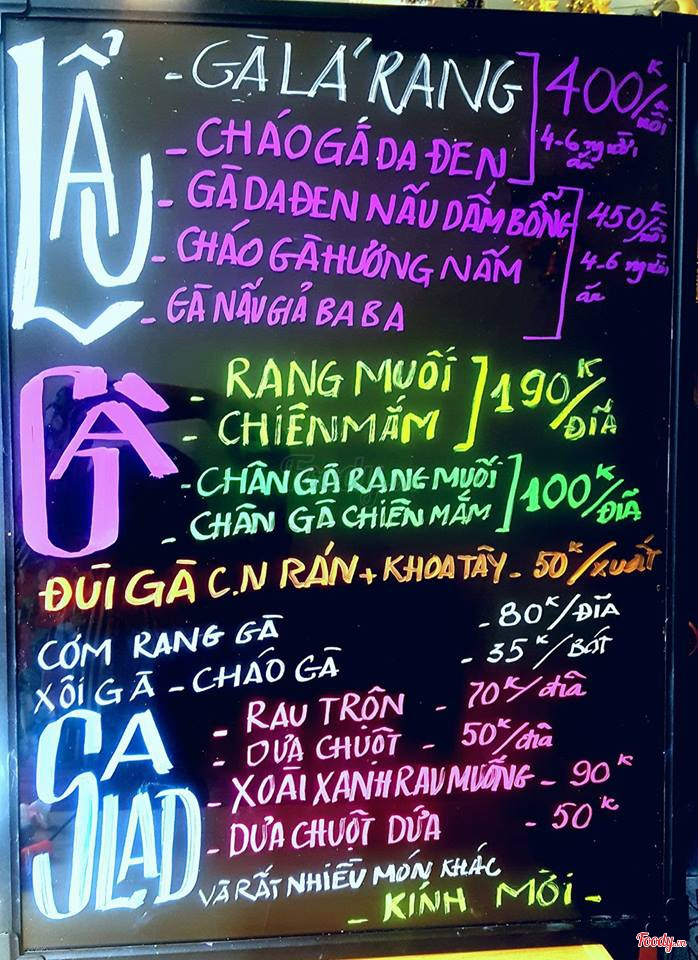 LẨU
- GÀ LÁ RANG
- CHÁO GÁ DA ĐEN
400K/nồi
4-6 người ăn
- GÀ DA ĐEN NẤU DẤM BỖNG
- CHÁO GÀ HƯỚNG NẤM
- GÀ NẤU GIẢ BA BA
450K/nồi
4-6 người ăn
GÀ
- RANG MUỐI
- CHIÊN MẮM
190K/ĐĨA
- CHÂN GÀ RANG MUỐI
- CHÂN GÀ CHIÊN MẮM
100K/ĐĨA
ĐÙI GÀ C.N RÁN + KHOA TÂY - 50K/XUẤT
CƠM RANG GÀ - 80K/ĐĨA
XÔI GÀ - CHÁO GÀ - 35K/BÁT
SALAD
- RAU TRỘN - 70K/đĩa
- DƯA CHUỘT - 50K/đĩa
- XOÀI XANH RAU MUỐNG - 90K
- DƯA CHUỘT DỨA - 50K
VÀ RẤT NHIỀU MÓN KHÁC
- KÍNH MỜI -
Foody
Foody.vn